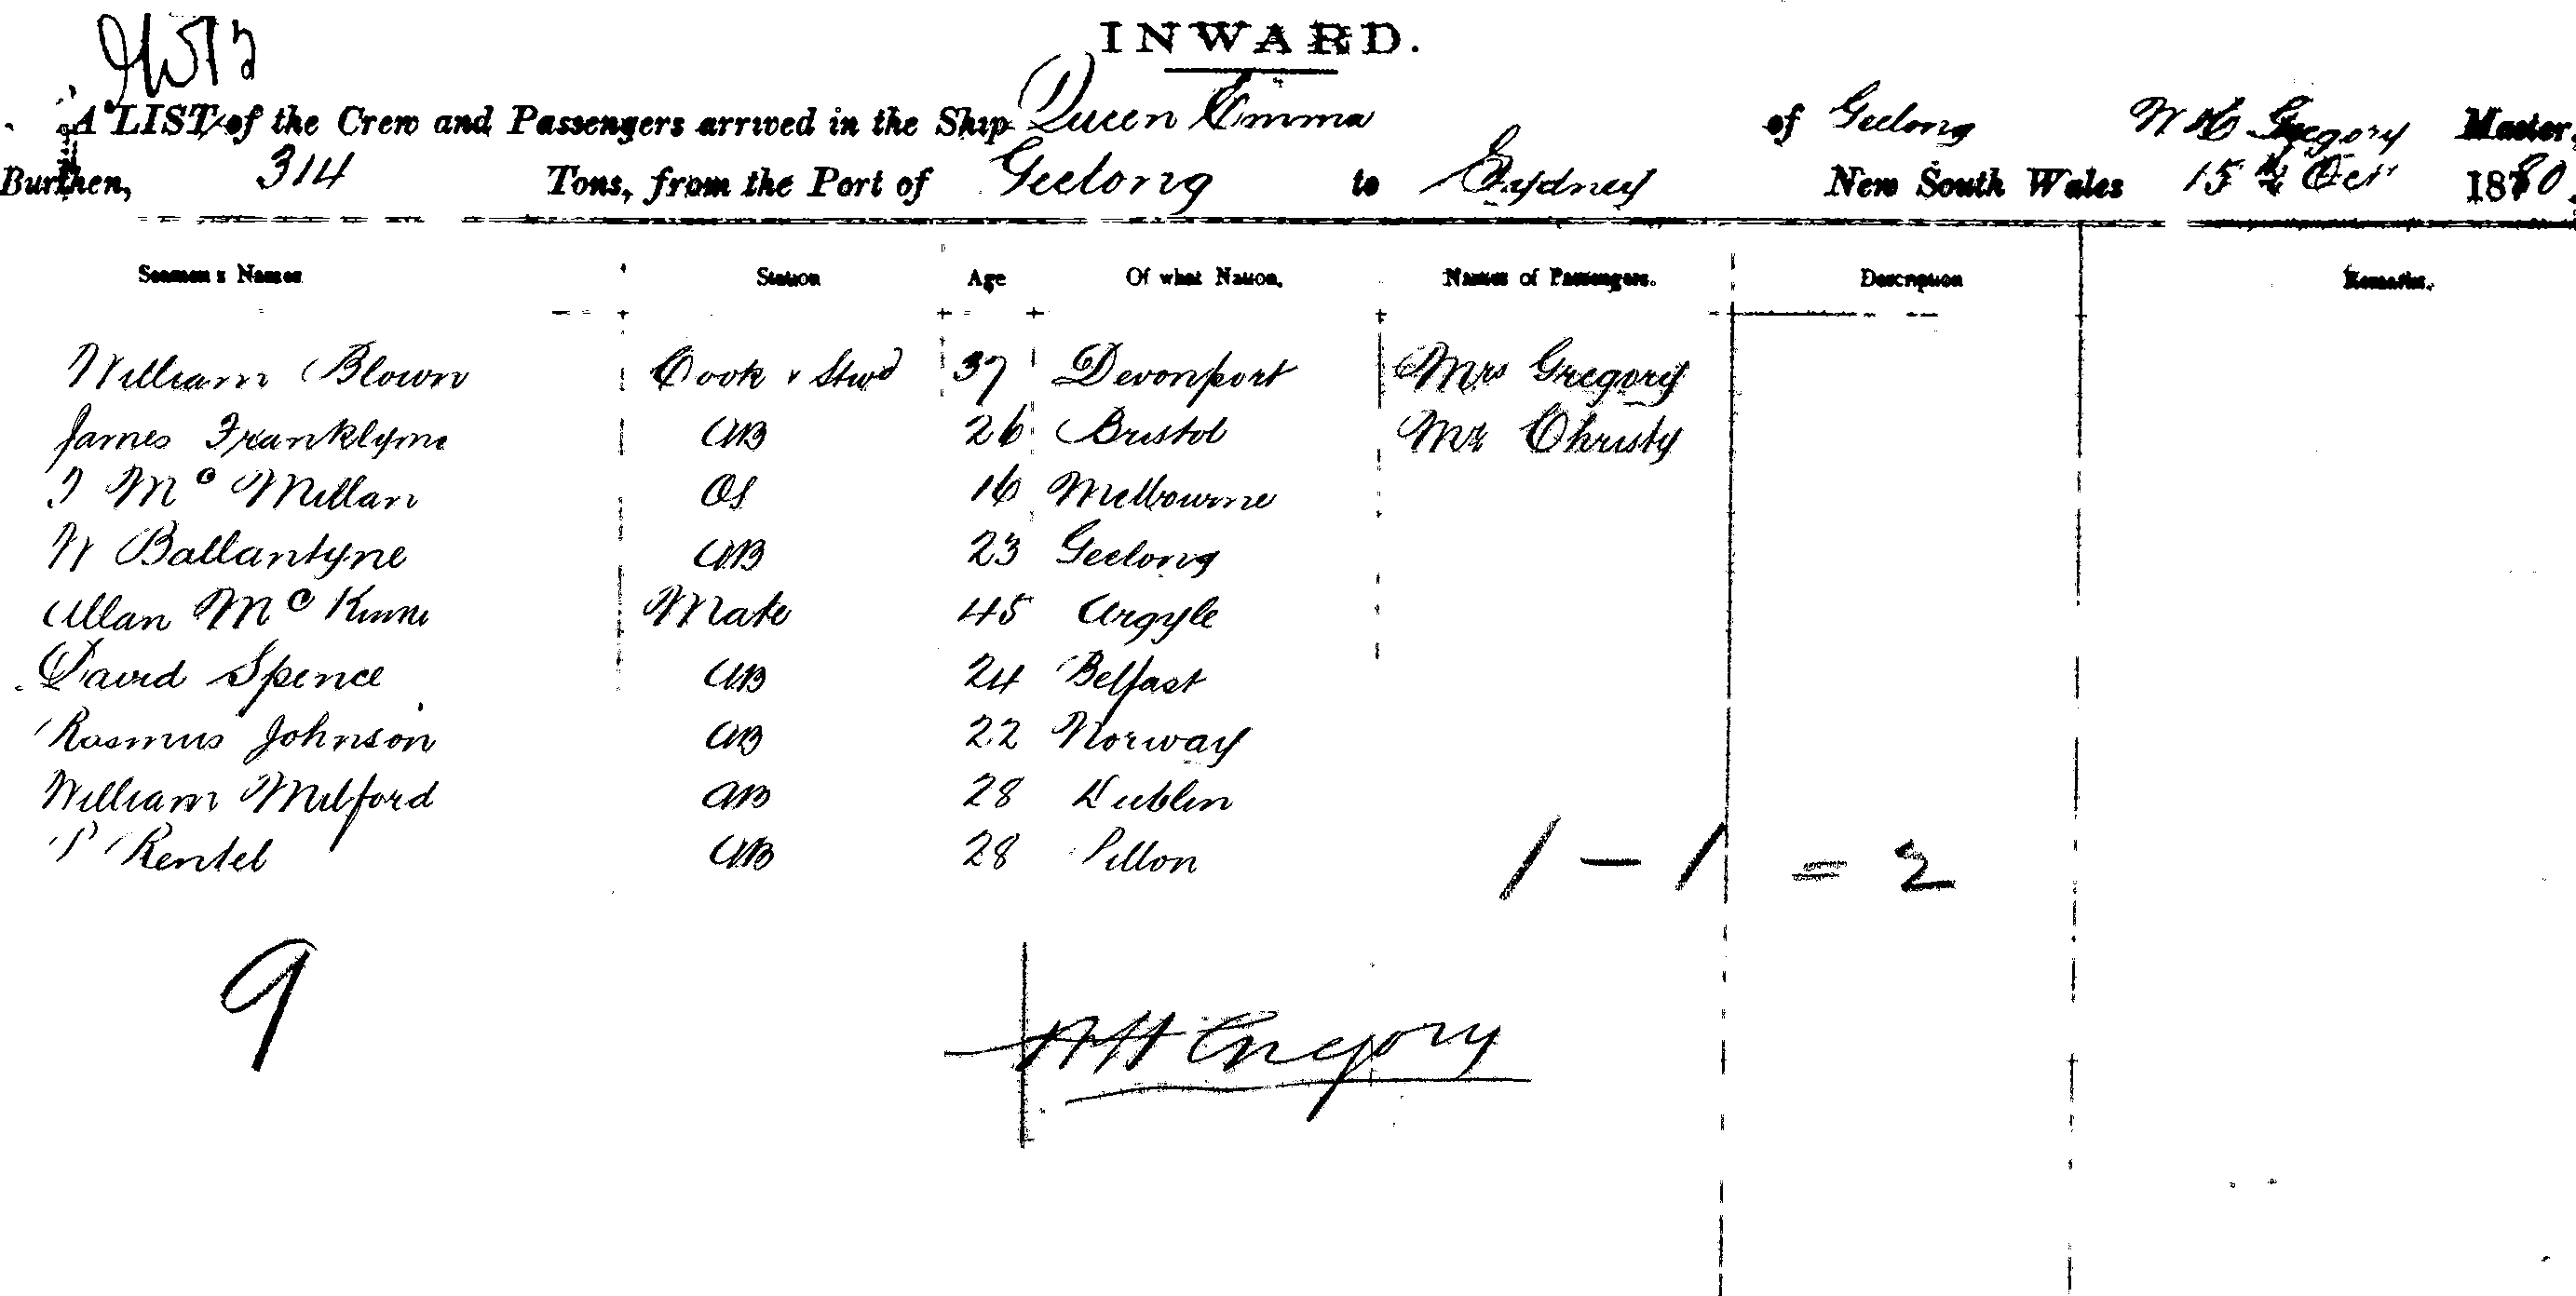 INWARD.
A LIST of the Crew and Passengers arrived in the Ship Queen Emma of Geelong W H Gregory Master,
Burthen, 314 Tons, from the Port of Geelong to Sydney New South Wales 15th Oct 1880
Seamen's Names Station Age Of what Nation. Names of Passengers. Description Remarks.
William Blown Cook & Stwd 37 Devonport Mrs Gregory
James Franklyne AB 26 Bristol Mr Christy
Mc Millan OS 16 Melbourne
W Ballantyne AB 23 Geelong
Allan Mc Kinne Mate 45 Argyle
David Spence AB 24 Belfast
Rasmus Johnson AB 22 Norway
William Milford AB 28 Dublin
Rentel AB 28 Pillon
1 - 1 = 2
9
WH Gregory